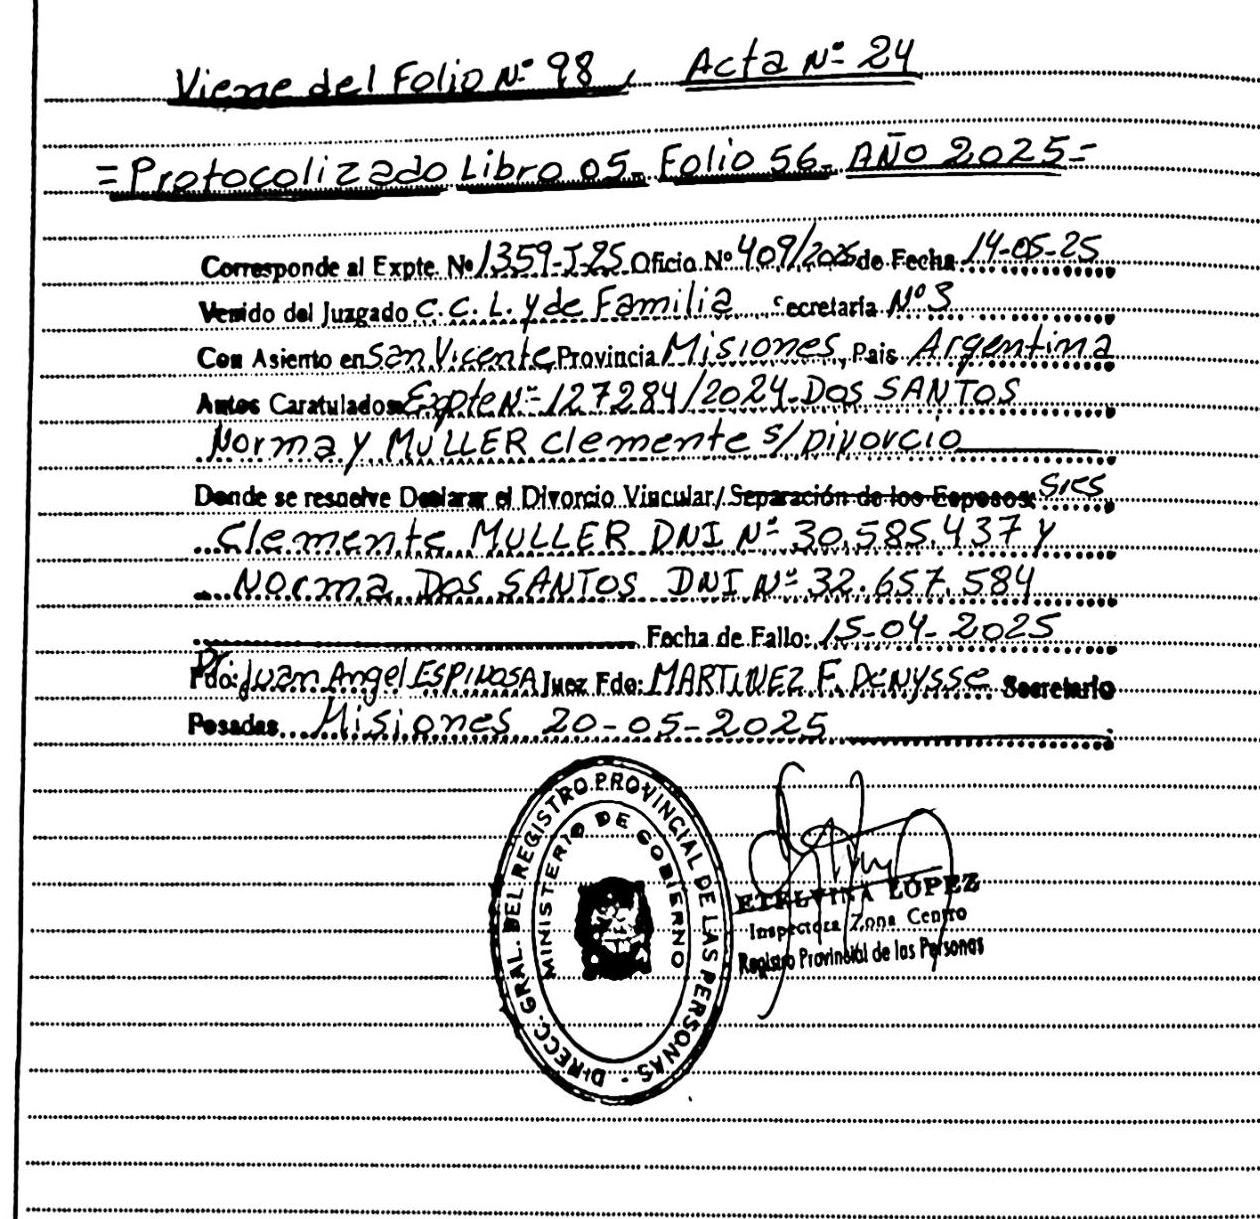 Viene del Folio Nº 98, Acta Nº 24
=Protocolizado Libro 05- Folio 56- AÑO 2025=
Corresponde al Expte. Nº 1359-I-25 Oficio Nº 409/2025 de Fecha 14-05-25
Venido del Juzgado C.C.L. y de Familia Secretaría Nº 3
Con Asiento en San Vicente, Provincia Misiones, Pais Argentina
Autos Caratulados Expte Nº 127284/2024-DOS SANTOS
Norma y MULLER Clemente S/ Divorcio
Donde se resuelve Declarar el Divorcio Vincular/ Separación de los Esposos: Sres
Clemente MULLER DNI Nº 30.585.437 y
Norma DOS SANTOS DNI Nº 32.657.584
Fecha de Fallo: 15-04-2025
Fdo: Dr. Juan Angel ESPINOSA Juez Fdo: MARTINEZ F. Denysse Secretario
Posadas Misiones 20-05-2025
DIRECC. GRAL. DEL REGISTRO PROVINCIAL DE LAS PERSONAS -
MINISTERIO DE GOBIERNO
ETELVINA LÓPEZ
Inspectora Zona Centro
Registro Provincial de las Personas